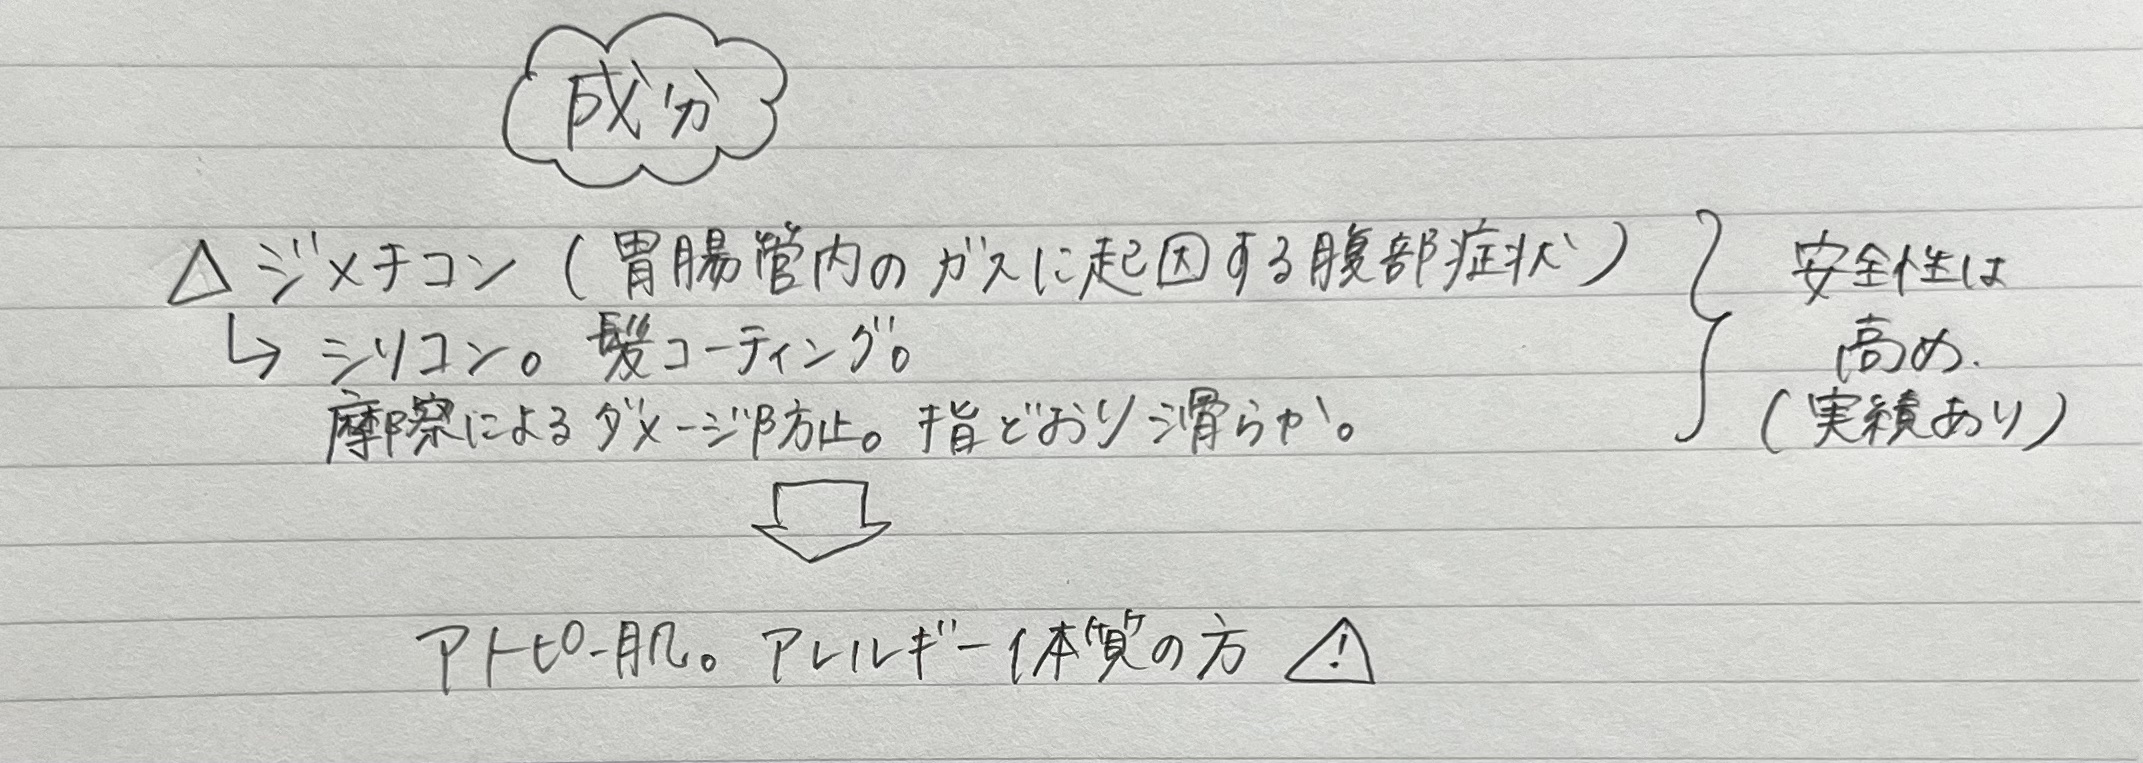 成分
△ジメチコン(胃腸管内のガスに起因する腹部症状)
↳ シリコン。髪コーティング。
摩擦によるダメージ防止。指どおり滑らか。
安全性は
高め.
(実績あり)
アトピー肌。アレルギー体質の方 ⚠